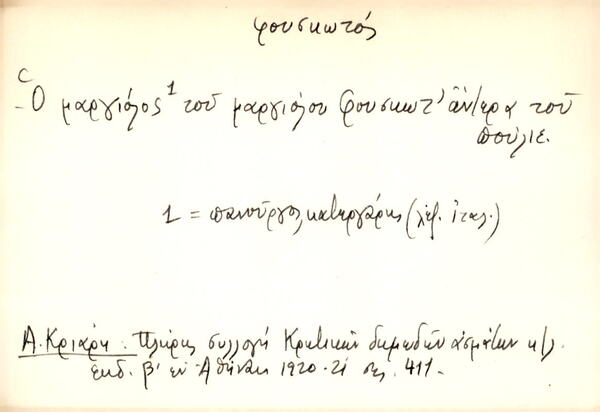 φουσκωτός
Ὁ μαργιόλος¹ τοῦ μαργιόλου φουσκωτ' ἄντερα τοῦ
πούλιε.
1 = πανοῦργος, κατεργάρης (λέξ. ἰταλ.)
Α. Κριάρη : Πλήρης συλλογή Κρητικῶν δημωδῶν ἀσμάτων κ/λ.
ἔκδ. β' ἐν Ἀθήναις 1920-21 σελ. 411.